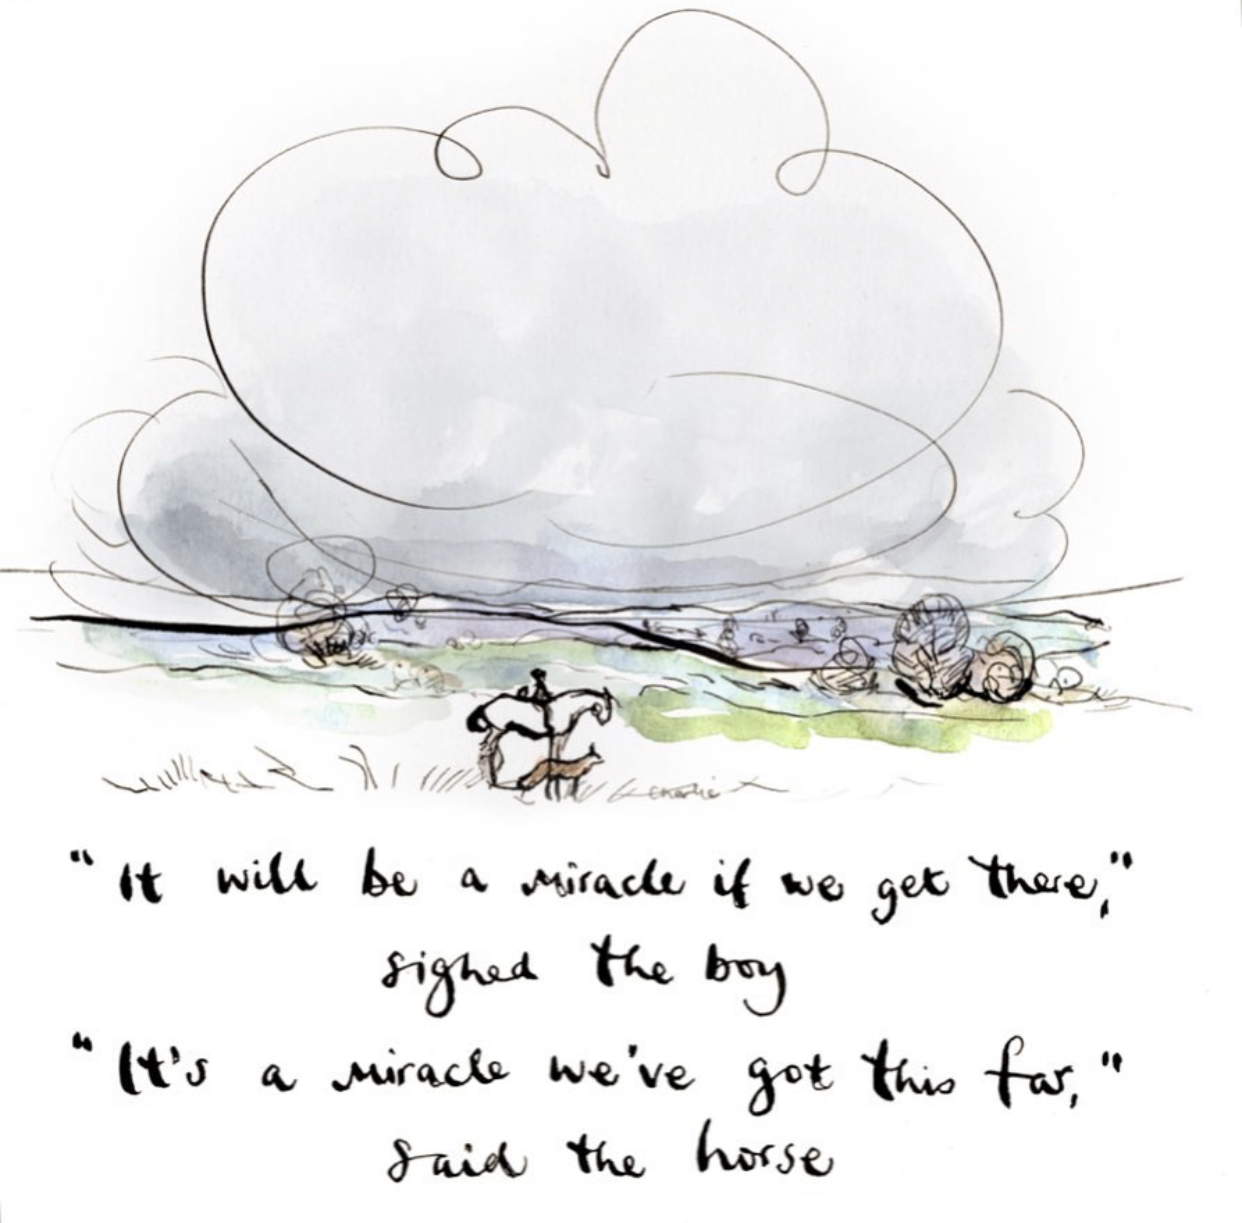 Charlie
"It will be a miracle if we get there,"
sighed the boy
"It's a miracle we've got this far,"
said the horse